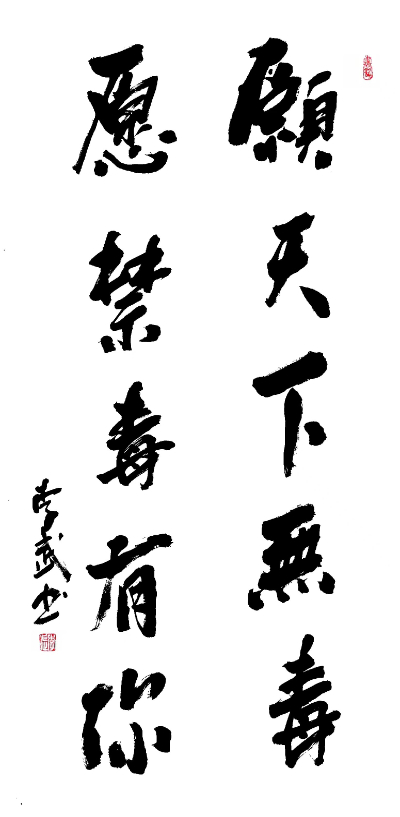 願天下無毒
愿禁毒有你
李武书